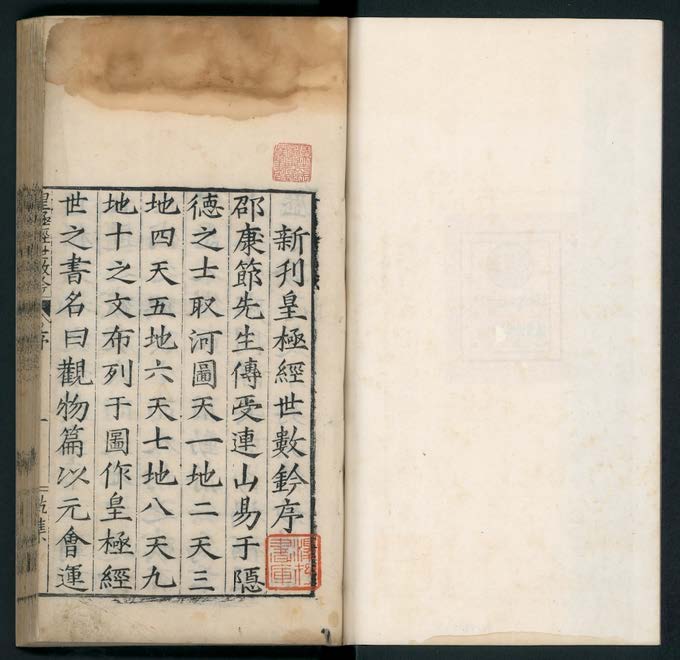 新刊皇極經世數鈐序
邵康節先生傳受連山易于隱
德之士取河圖天一地二天三
地四天五地六天七地八天九
地十之文布列于圖作皇極經
世之書名曰觀物篇以元會運
皇極經世數鈐
序
一
乾集